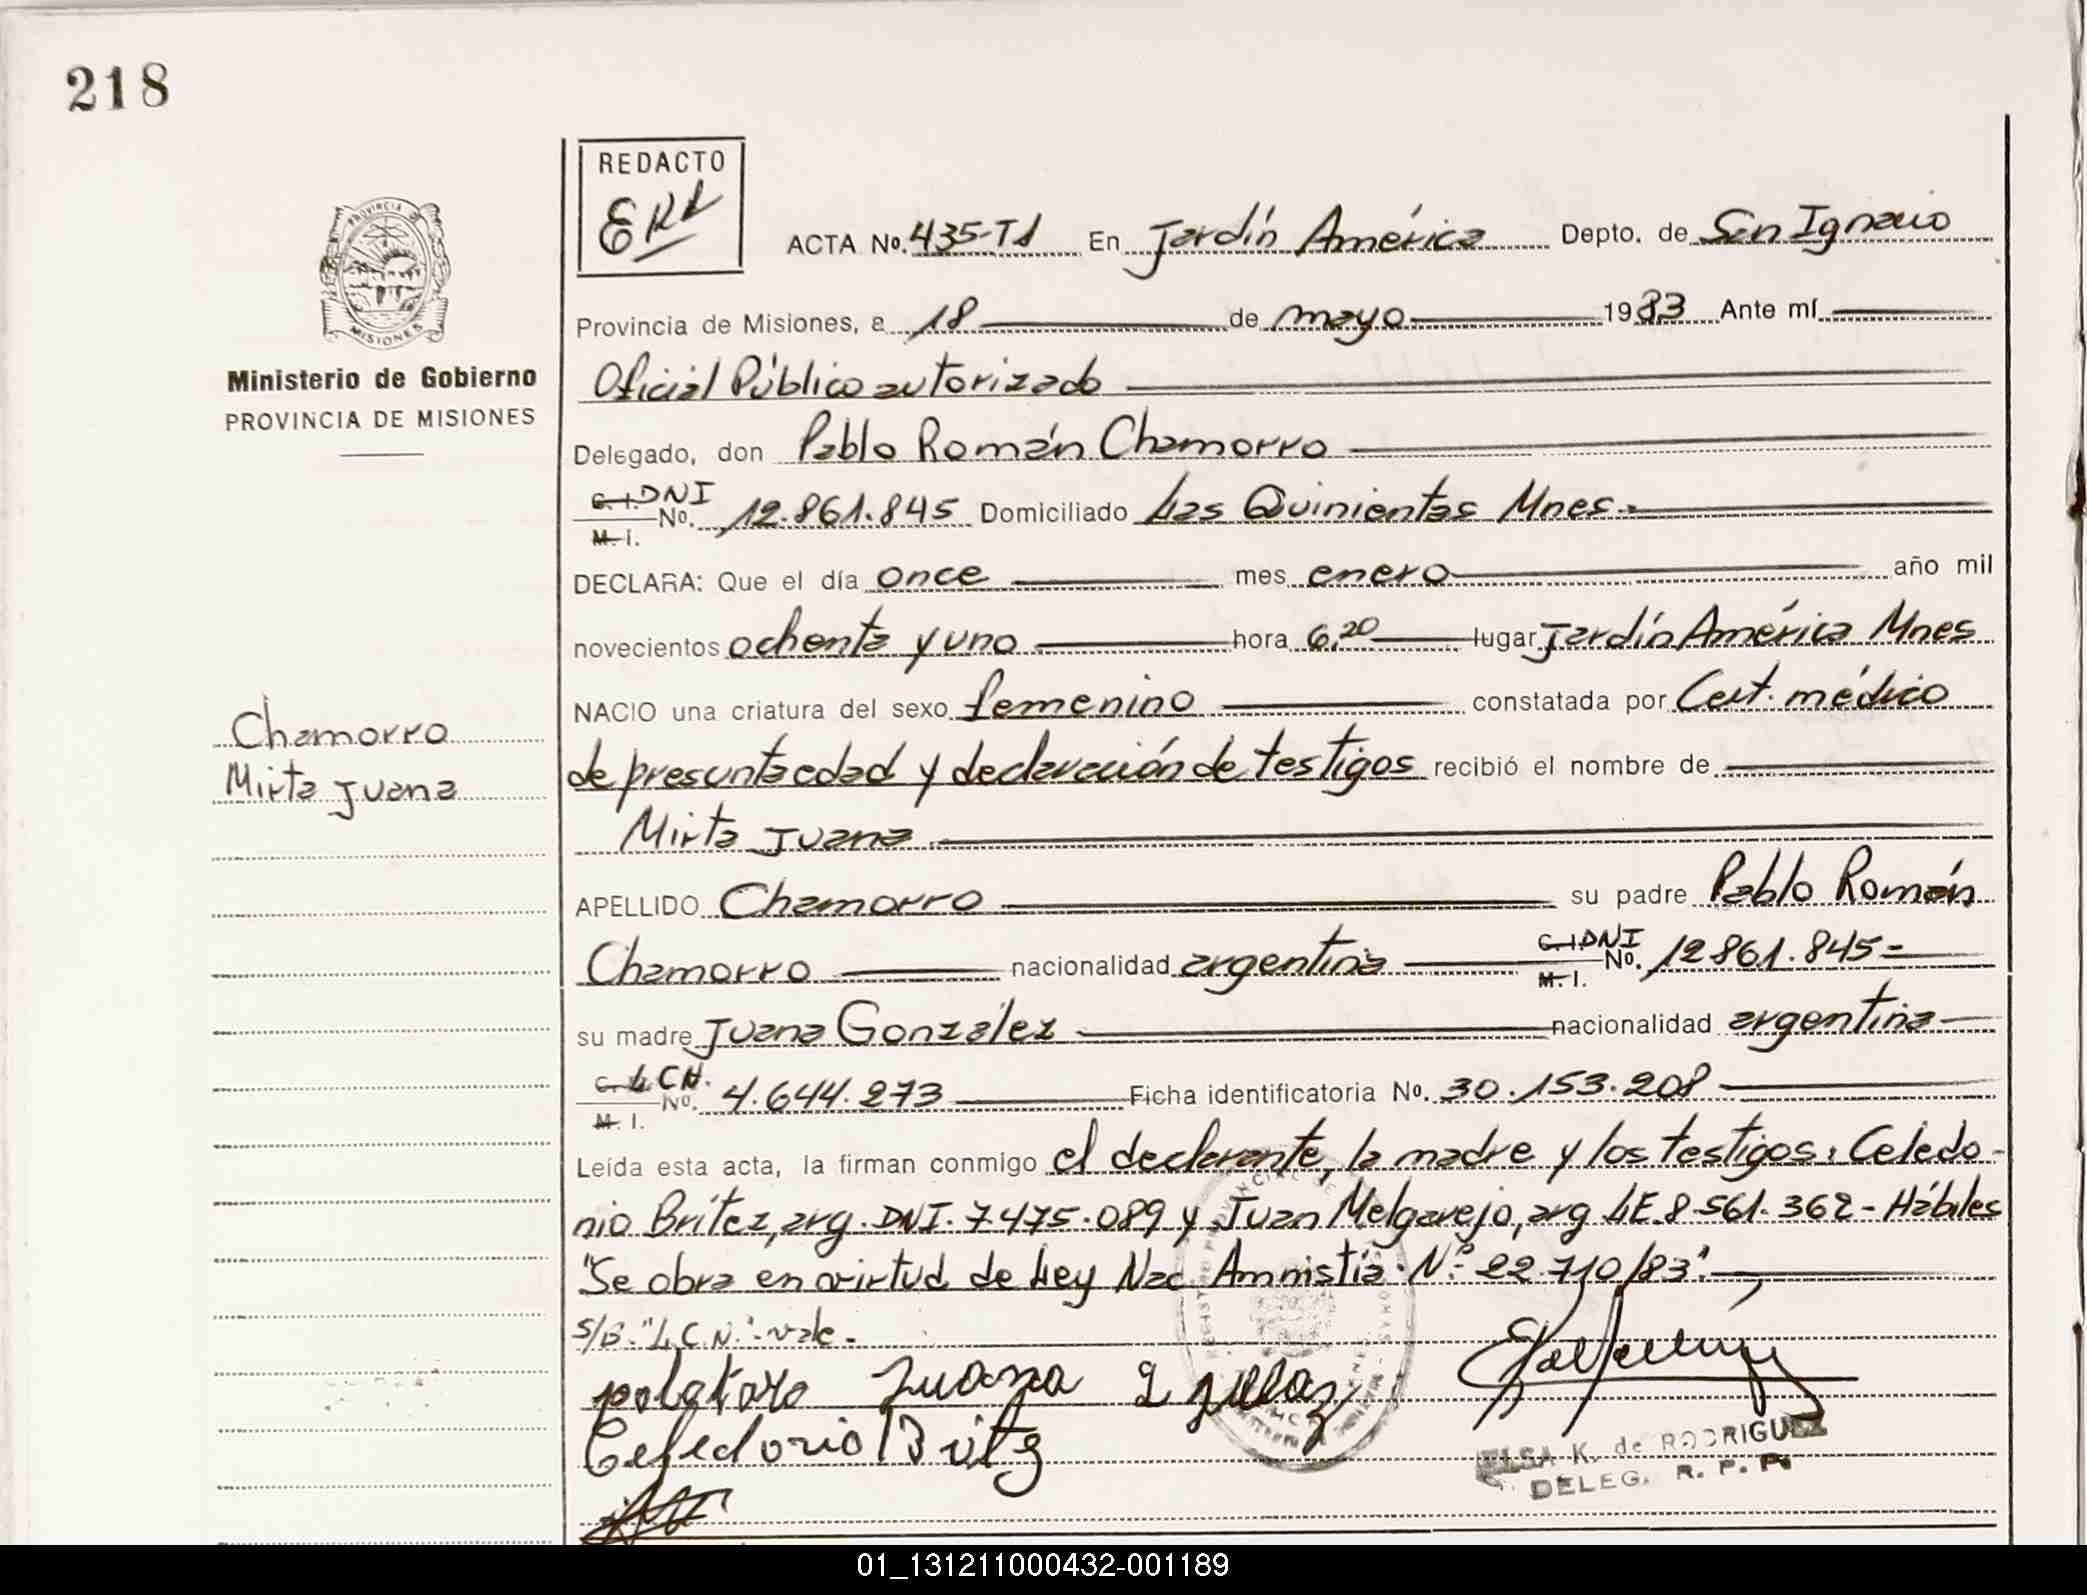 218
REDACTO
ERR
ACTA No. 435-TI En Jardín América Depto. de San Ignacio
Provincia de Misiones, a 18 de mayo 1983 Ante mí
Oficial Público autorizado
Delegado, don Pablo Román Chamorro
C.I. DNI
No. 12.861.845 Domiciliado Las Quinientas Mnes.
M.I.
DECLARA: Que el día once mes enero año mil
novecientos ochenta y uno hora 6,20 lugar Jardín América Mnes
NACIO una criatura del sexo femenino constatada por Cert. médico
de presunta edad y declaración de testigos recibió el nombre de
Mirta Juana
APELLIDO Chamorro su padre Pablo Román
Chamorro nacionalidad argentina C.I. DNI No. M.I. 12861.845=
su madre Juana González nacionalidad argentina
C. LCN.
No. 4.644.273 Ficha identificatoria No. 30.153.208
M.I.
Leída esta acta, la firman conmigo el declarante, la madre y los testigos: Celedo-
nio Britez, arg. DNI. 7.475.089 y Juan Melgarejo, arg LE 8.561.362 - Hábiles
"Se obra en virtud de Ley Nac Amnistía Nº 22.710/83".
S/B. "L.C.N." - vale -
Juana
ELSA K. de RODRIGUEZ
DELEG. R. P. P.
PROVINCIA DE
MISIONES
Ministerio de Gobierno
PROVINCIA DE MISIONES
Chamorro
Mirta Juana
01_131211000432-001189